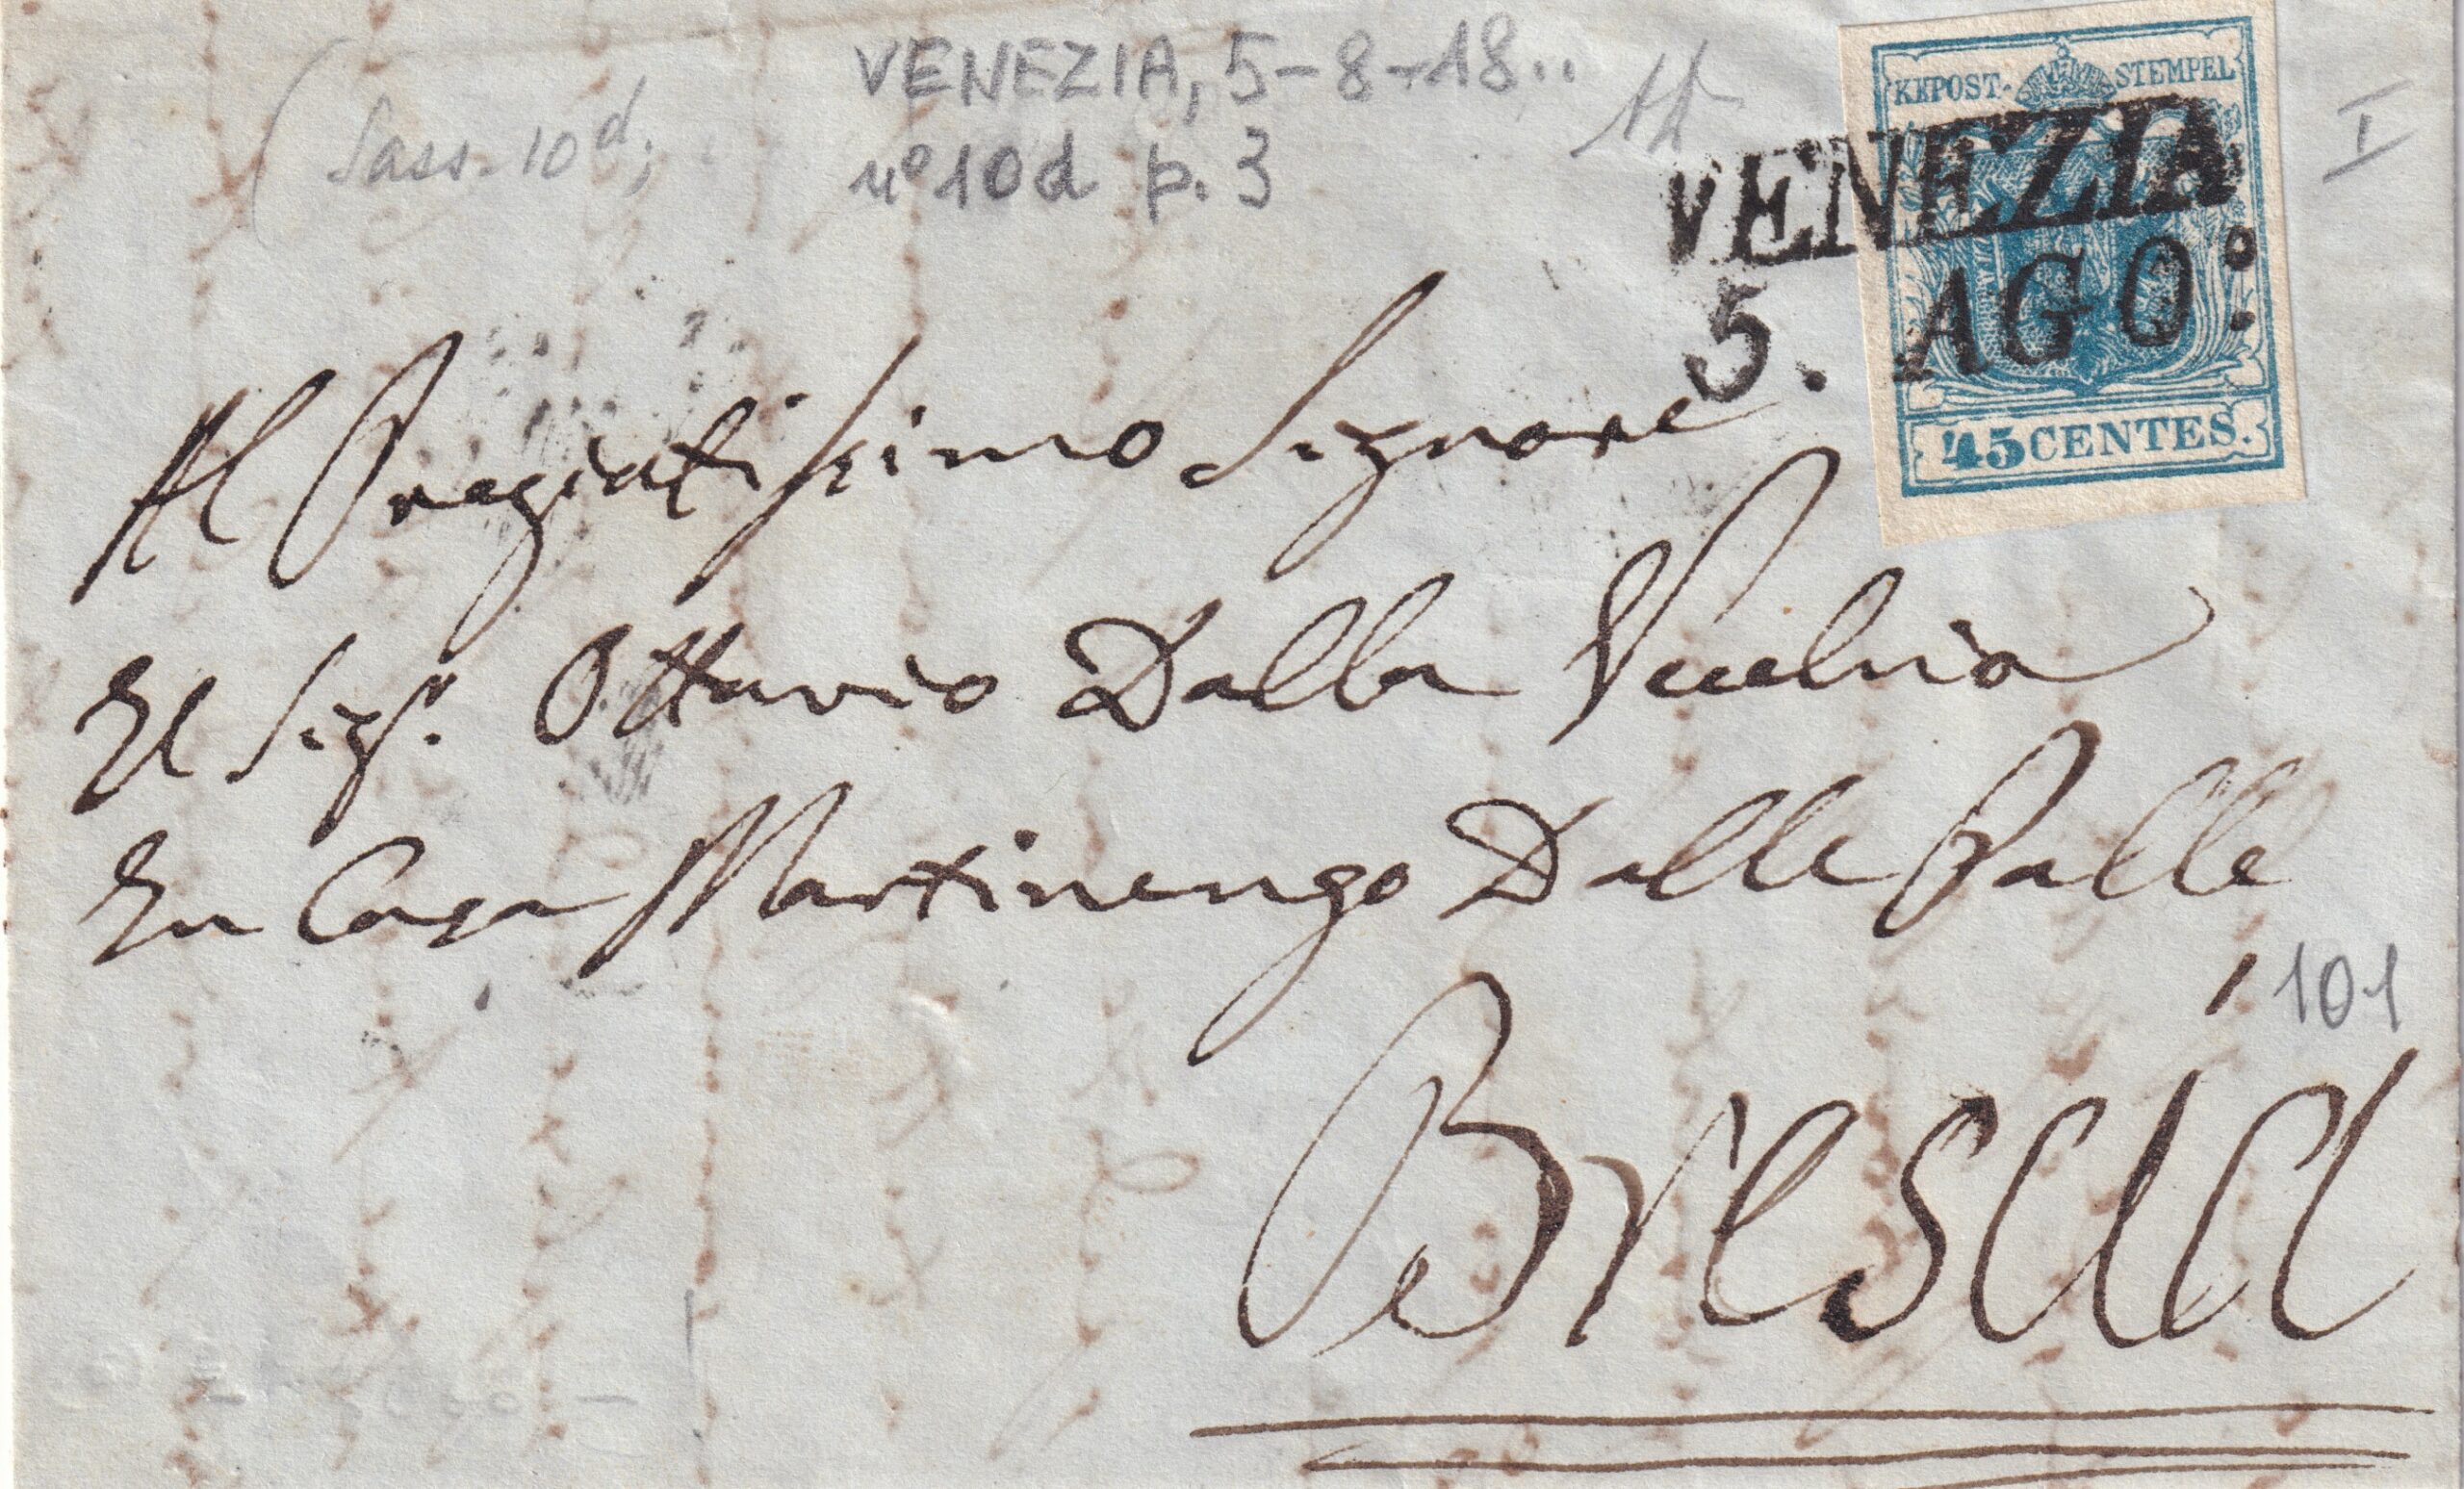 VENEZIA, 5-8-18..
Sass. 10d;
n° 10d p. 3
I
KKPOST-STEMPEL
VENEZIA
5. AGO:
45 CENTES.
Al Pregiatissimo Signore
Il Sigr. Ottavio Dalla Vecchia
In Casa Martinengo Dalle Palle
101
Brescia